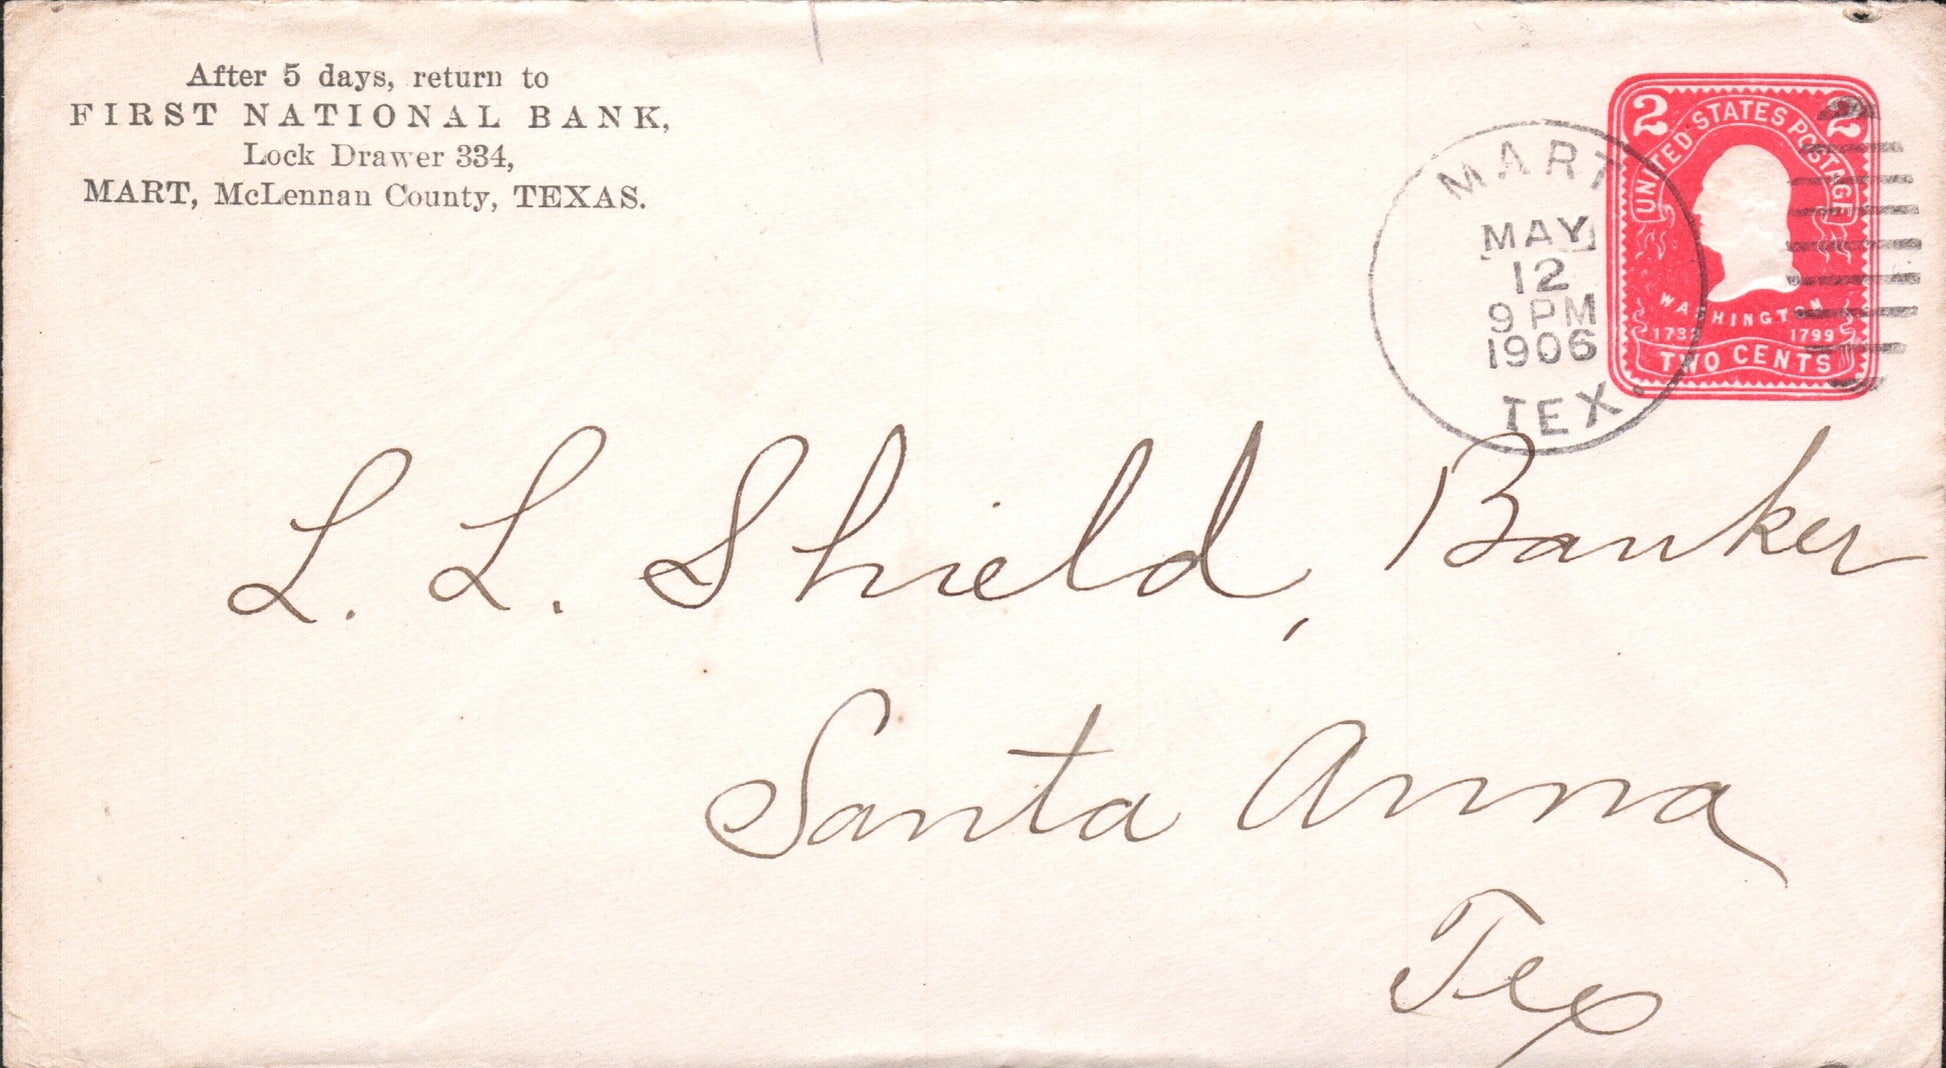 After 5 days, return to
FIRST NATIONAL BANK,
Lock Drawer 334,
MART, McLennan County, TEXAS.
MART
MAY
12
9 PM
1906
TEX.
2 2
UNITED STATES POSTAGE
WASHINGTON
1732 1799
TWO CENTS
L. L. Shield, Banker
Santa Anna
Tex